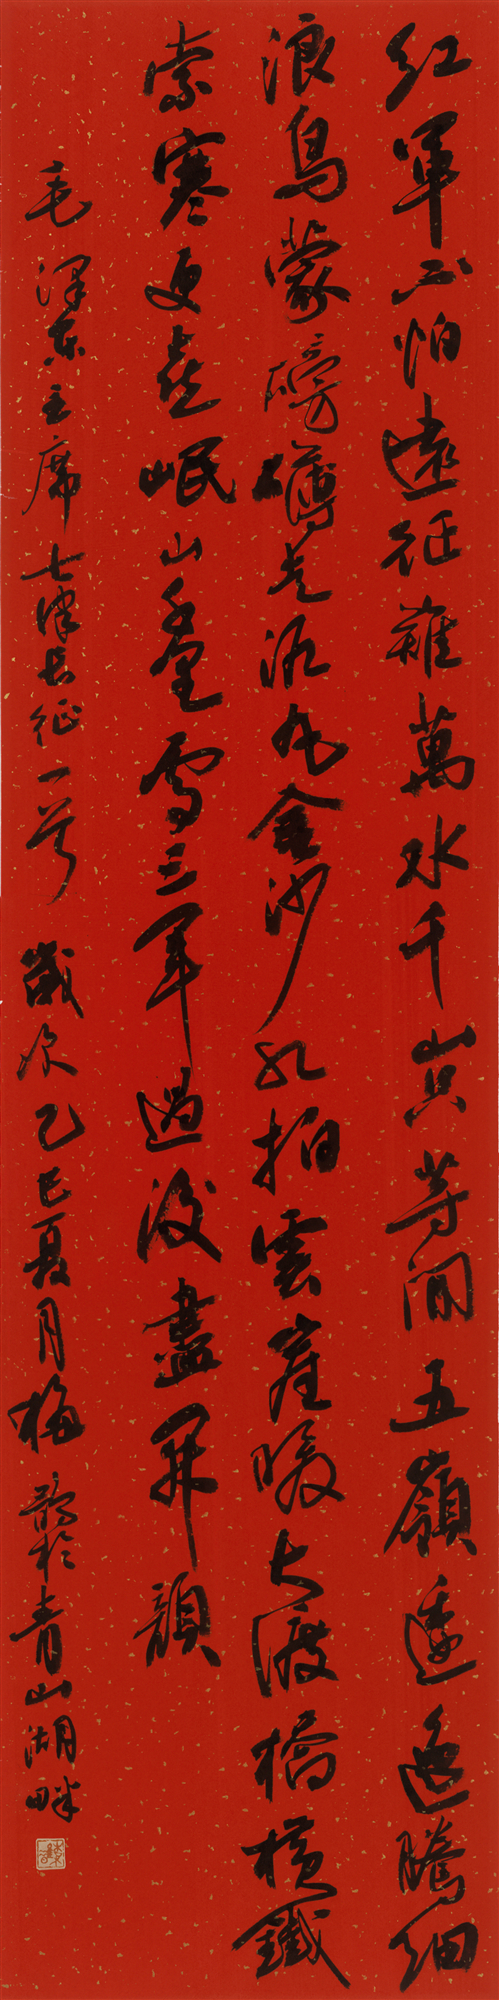 紅軍不怕遠征難萬水千山只等閒五嶺逶迤騰細
浪烏蒙磅礴走泥丸金沙水拍雲崖暖大渡橋横鐵
索寒更喜岷山千里雪三軍過後盡開顔
毛澤东主席七律长征一首 歲次乙巳夏月梅於青山湖畔